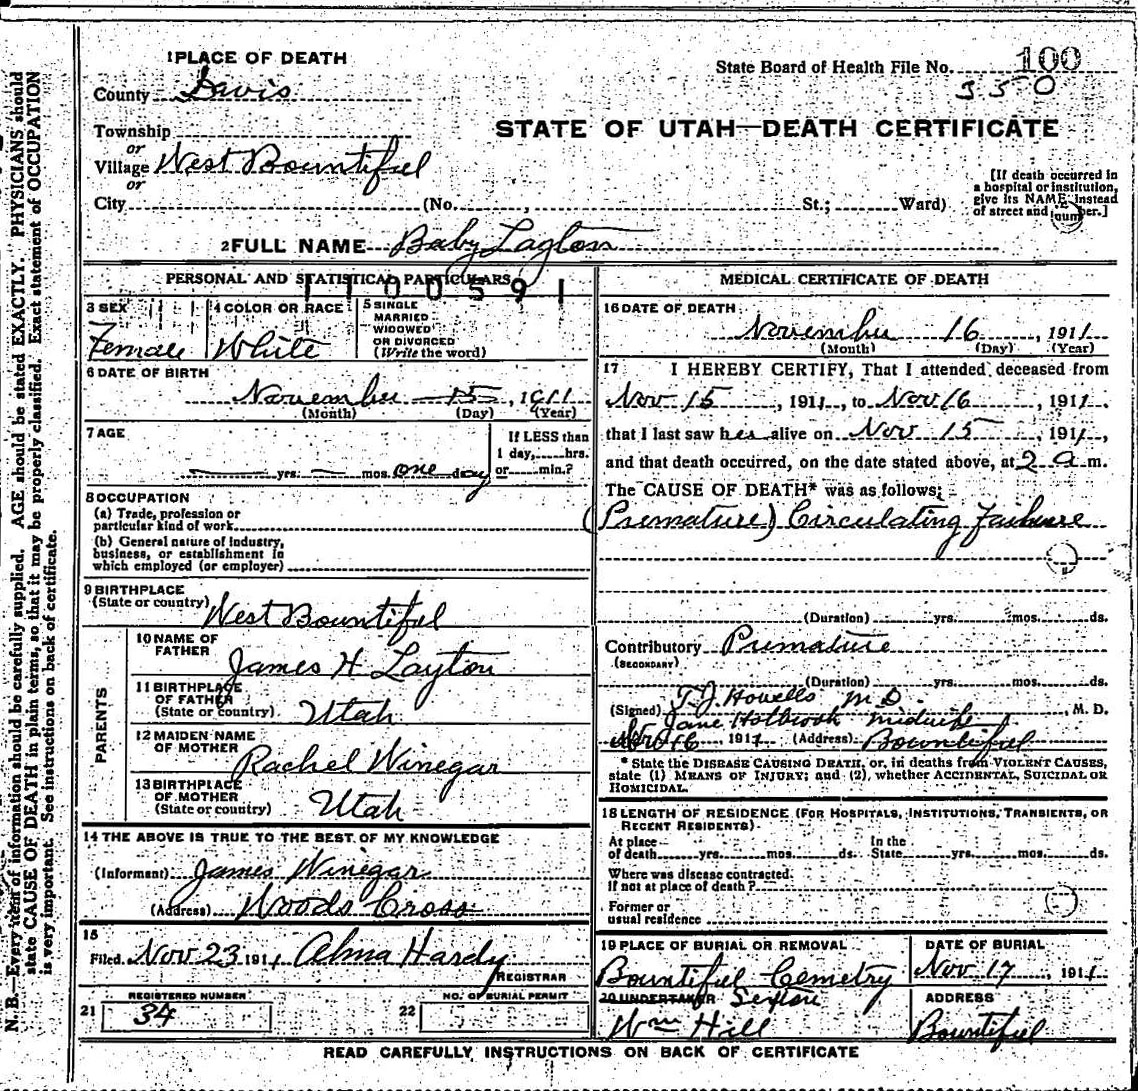 1 PLACE OF DEATH
State Board of Health File No. 100
350
County Davis
STATE OF UTAH—DEATH CERTIFICATE
Township
or
Village West Bountiful
or
City (No. , St.; Ward)
[If death occurred in
a hospital or institution,
give its NAME instead
of street and number.]
2 FULL NAME Baby Layton
PERSONAL AND STATISTICAL PARTICULARS
1100591
3 SEX
Female
4 COLOR OR RACE
White
5 SINGLE
MARRIED
WIDOWED
OR DIVORCED
(Write the word)
6 DATE OF BIRTH
November 15, 1911
(Month) (Day) (Year)
7 AGE
yrs. mos. one day
If LESS than
1 day, hrs.
or min.?
8 OCCUPATION
(a) Trade, profession or
particular kind of work
(b) General nature of industry,
business, or establishment in
which employed (or employer)
9 BIRTHPLACE
(State or country) West Bountiful
PARENTS
10 NAME OF
FATHER
James H Layton
11 BIRTHPLACE
OF FATHER
(State or country) Utah
12 MAIDEN NAME
OF MOTHER
Rachel Winegar
13 BIRTHPLACE
OF MOTHER
(State or country) Utah
14 THE ABOVE IS TRUE TO THE BEST OF MY KNOWLEDGE
(Informant) James Winegar
(Address) Woods Cross
15
Filed Nov 23 1911 Alma Hardy
REGISTRAR
REGISTERED NUMBER
21 34
NO. OF BURIAL PERMIT
22
MEDICAL CERTIFICATE OF DEATH
16 DATE OF DEATH
November 16, 1911
(Month) (Day) (Year)
17 I HEREBY CERTIFY, That I attended deceased from
Nov 15, 1911, to Nov 16, 1911,
that I last saw her alive on Nov 15, 1911,
and that death occurred, on the date stated above, at 2 a m.
The CAUSE OF DEATH* was as follows:
(Premature) Circulating Failure
(Duration) yrs. mos. ds.
Contributory Premature
(SECONDARY)
(Duration) yrs. mos. ds.
(Signed) T. J. Howells M D. , M. D.
Jane Holbrook midwife
Nov 16, 1911 (Address) Bountiful
* State the DISEASE CAUSING DEATH, or, in deaths from VIOLENT CAUSES,
state (1) MEANS OF INJURY; and (2), whether ACCIDENTAL, SUICIDAL OR
HOMICIDAL.
18 LENGTH OF RESIDENCE (FOR HOSPITALS, INSTITUTIONS, TRANSIENTS, OR
RECENT RESIDENTS).
At place
of death yrs. mos. ds.
In the
State yrs. mos. ds.
Where was disease contracted,
if not at place of death?
Former or
usual residence
19 PLACE OF BURIAL OR REMOVAL
Bountiful Cemetry
DATE OF BURIAL
Nov 17, 1911
20 UNDERTAKER Sexton
Wm Hill
ADDRESS
Bountiful
READ CAREFULLY INSTRUCTIONS ON BACK OF CERTIFICATE
N. B.—Every item of information should be carefully supplied. AGE should be stated EXACTLY. PHYSICIANS should
state CAUSE OF DEATH in plain terms, so that it may be properly classified. Exact statement of OCCUPATION
is very important. See instructions on back of certificate.